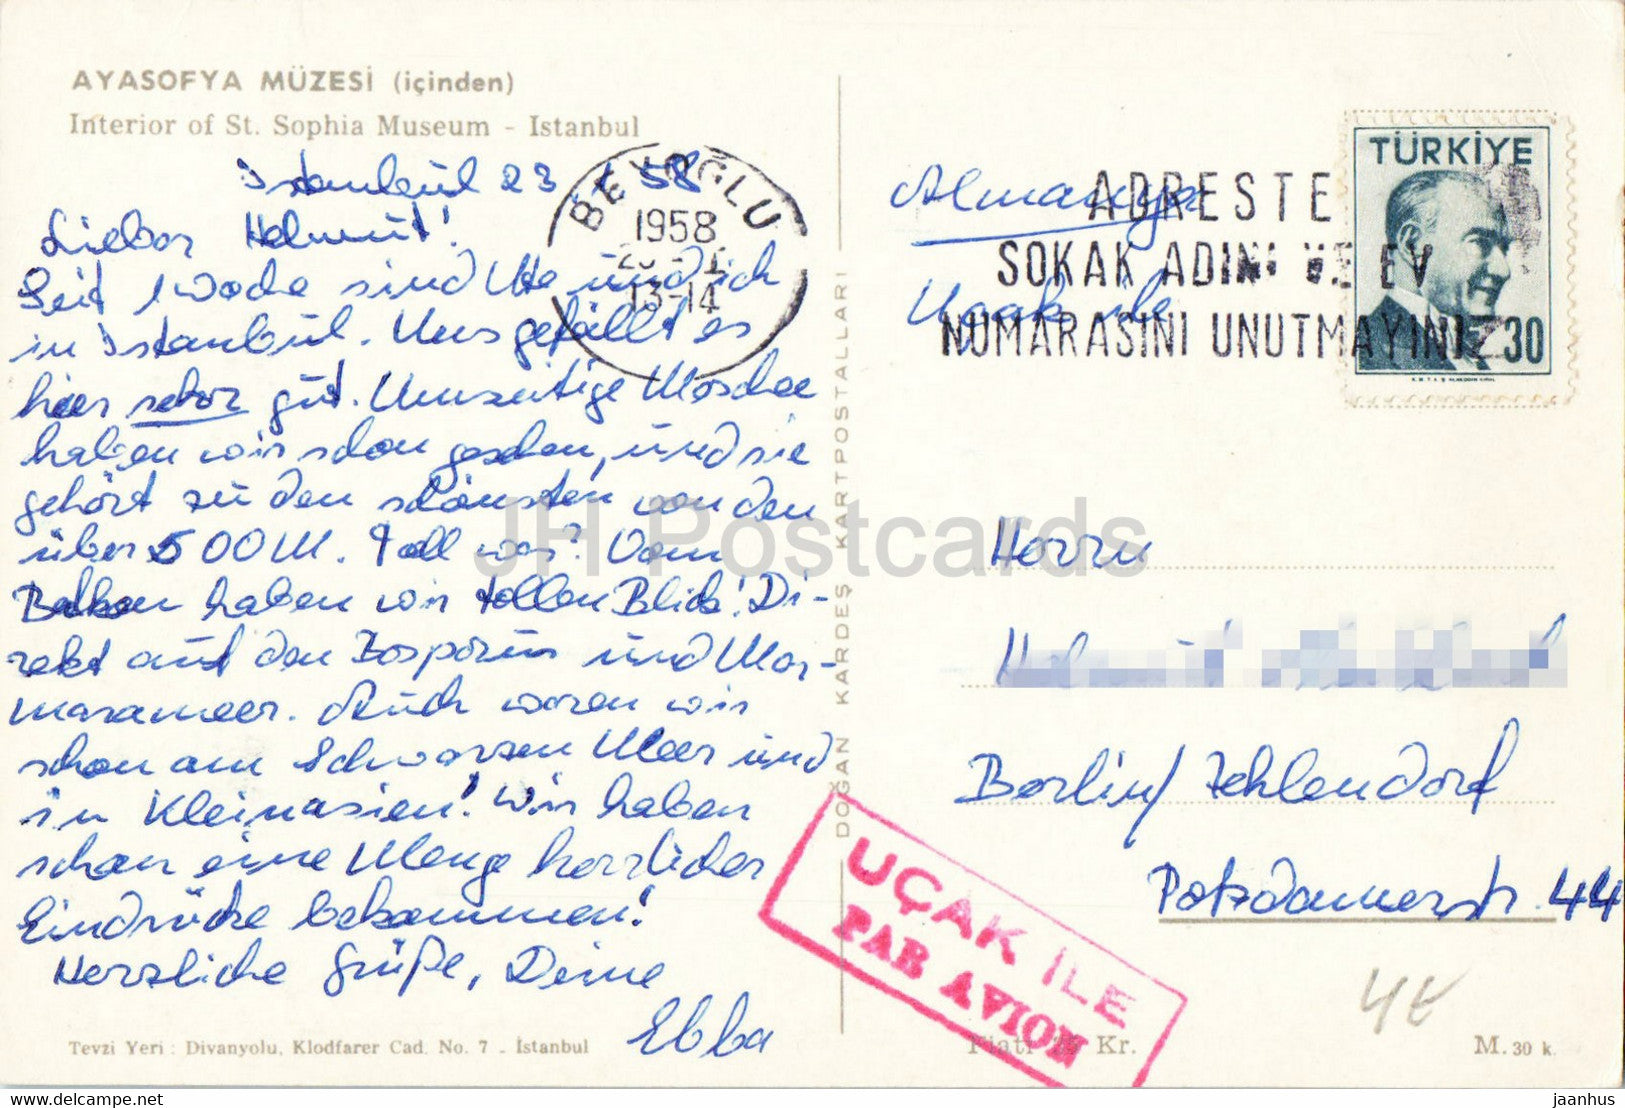 AYASOFYA MÜZESİ (içinden)
Interior of St. Sophia Museum - Istanbul
Istanbul 23 1 58
Lieber Helmut!
Seit 1 Woche sind Ute und ich
in Istanbul. Uns gefällt es
hier sehr gut. Moschee
haben wir schon gesehen, und sie
gehört zu den schönsten von den
über 500!!! Toll was? Vom
Balkon haben wir tollen Blick! Di-
rekt auf den Bosporus und Mar-
marameer. Auch waren wir
schon am Schwarzen Meer und
in Kleinasien! Wir haben
schon eine Menge herrlicher
Eindrücke bekommen!
Herzliche Grüße, Deine
Ebba
Tevzi Yeri : Divanyolu, Klodfarer Cad. No. 7 - İstanbul
BEYOĞLU
1958
13-14
DOĞAN KARDEŞ KARTPOSTALLARI
Almanya
Uçak ile
ADRESTE
SOKAK ADINI VE EV
NUMARASINI UNUTMAYINIZ
TÜRKİYE
30
Herrn
Berlin/Zehlendorf
Potsdamerstr 44
UÇAK İLE
PAR AVION
Fiatı 25 Kr.
M. 30 k.
JH Postcards
the next hammer
jaanhus